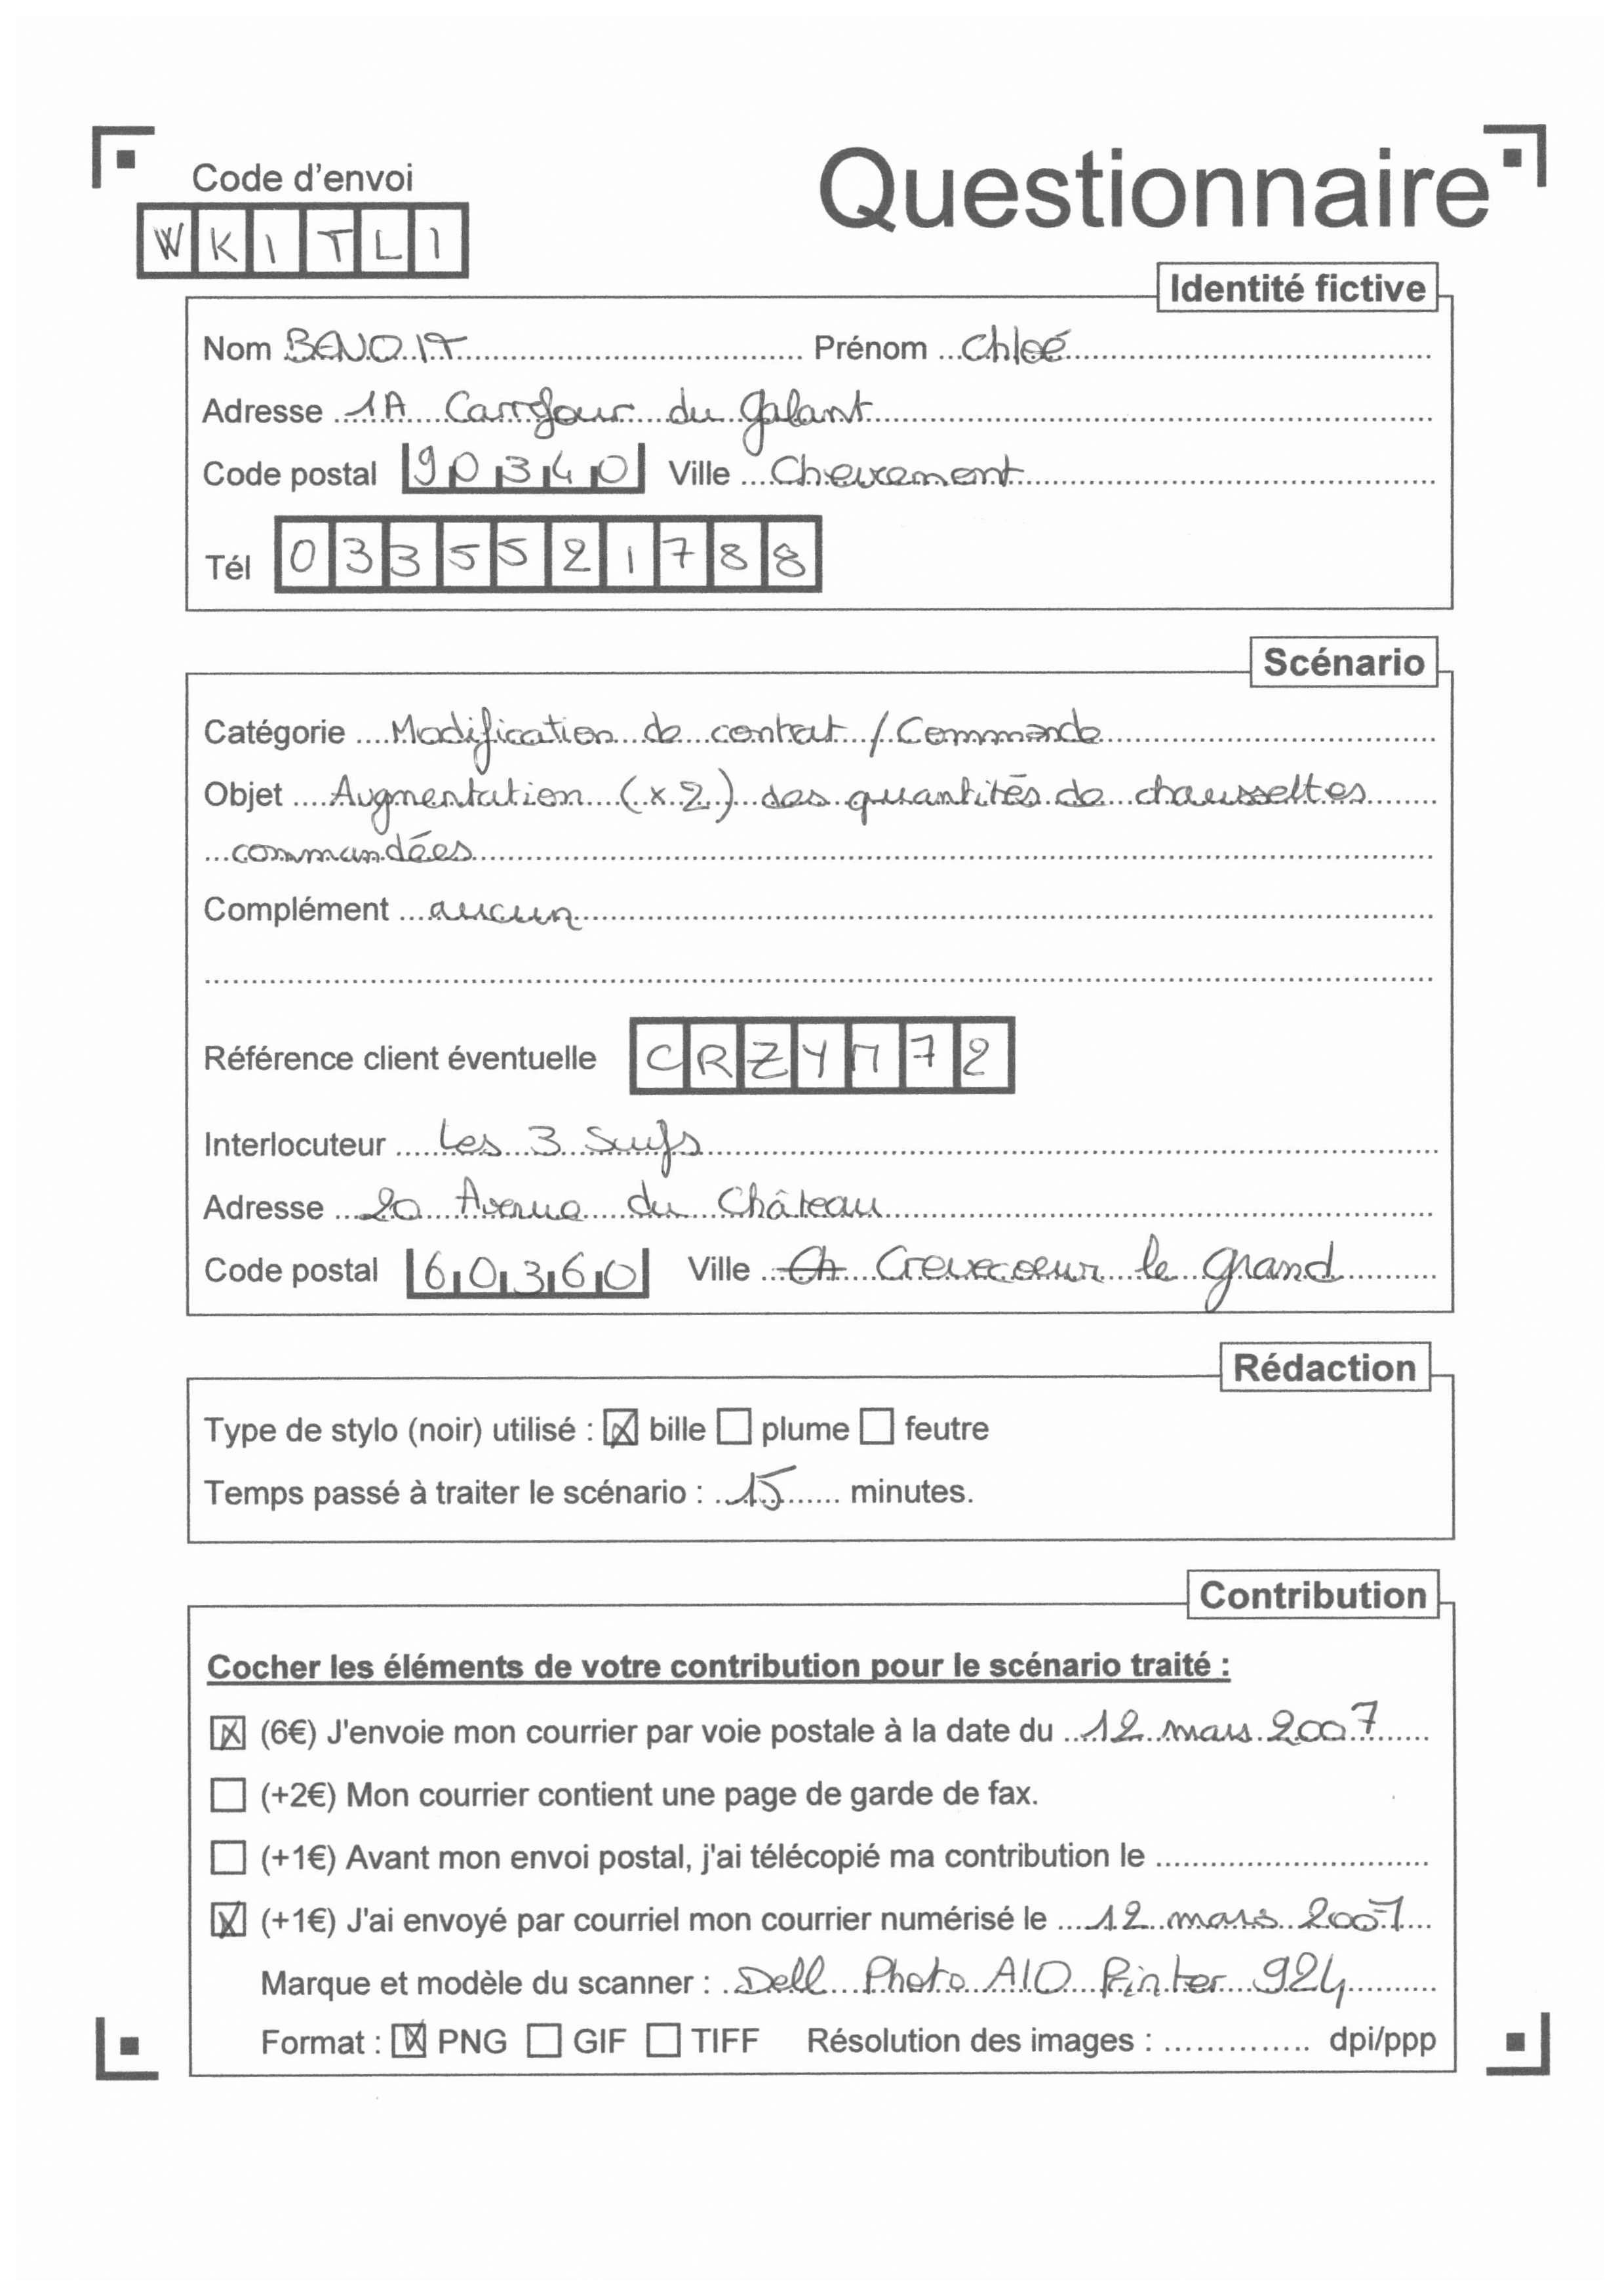 Code d'envoi
Questionnaire
W K I T L I
Identité fictive
Nom BENOIT Prénom Chloé
Adresse 1A Carrefour du galant
Code postal 90340 Ville Chevremont
Tél 0335521788
Scénario
Catégorie Modification de contrat / Commande
Objet Augmentation (x 2) des quantités de chaussettes
commandées
Complément aucun
Référence client éventuelle CRZYM72
Interlocuteur Les 3 Suifs
Adresse 20 Avenue du Château
Code postal 60360 Ville Crevecoeur le grand
Rédaction
Type de stylo (noir) utilisé : ☒ bille ☐ plume ☐ feutre
Temps passé à traiter le scénario : 15 minutes.
Contribution
Cocher les éléments de votre contribution pour le scénario traité :
☒ (6€) J'envoie mon courrier par voie postale à la date du 12 mars 2007
☐ (+2€) Mon courrier contient une page de garde de fax.
☐ (+1€) Avant mon envoi postal, j'ai télécopié ma contribution le
☒ (+1€) J'ai envoyé par courriel mon courrier numérisé le 12 mars 2007
Marque et modèle du scanner : Dell Photo AIO Printer 924
Format : ☒ PNG ☐ GIF ☐ TIFF Résolution des images : dpi/ppp